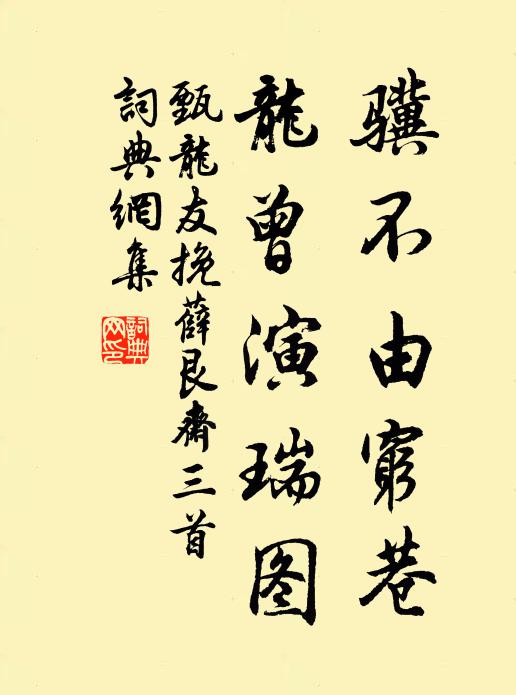 骥不由窮巷
龍曾演瑞图
甄龍友挽薛艮齋三首
詞典網集
詞典网印